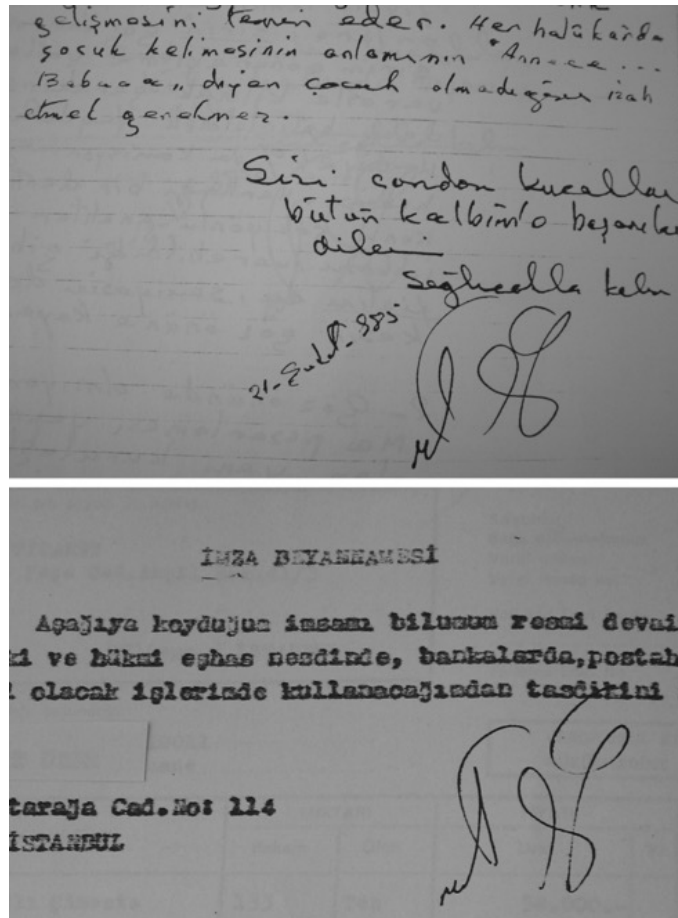 gelişmesini temin eder. Her halûkârda
çocuk kelimesinin anlamının "Annee...
Babaaa,, diyen çocuk olmadığını izah
etmek gerekmez.
Sizi candan kucaklar
bütün kalbimle başarılar
dilerim
Sağlıcakla kalın
21-Eylül-985
İMZA BEYANNAMESİ
Aşağıya koyduğum imzamı bilumum resmi devai
ki ve hükmi eşhas nezdinde, bankalarda,postah
i olacak işlerimde kullanacağımdan tasdikini
tarağa Cad.No: 114
İSTANBUL